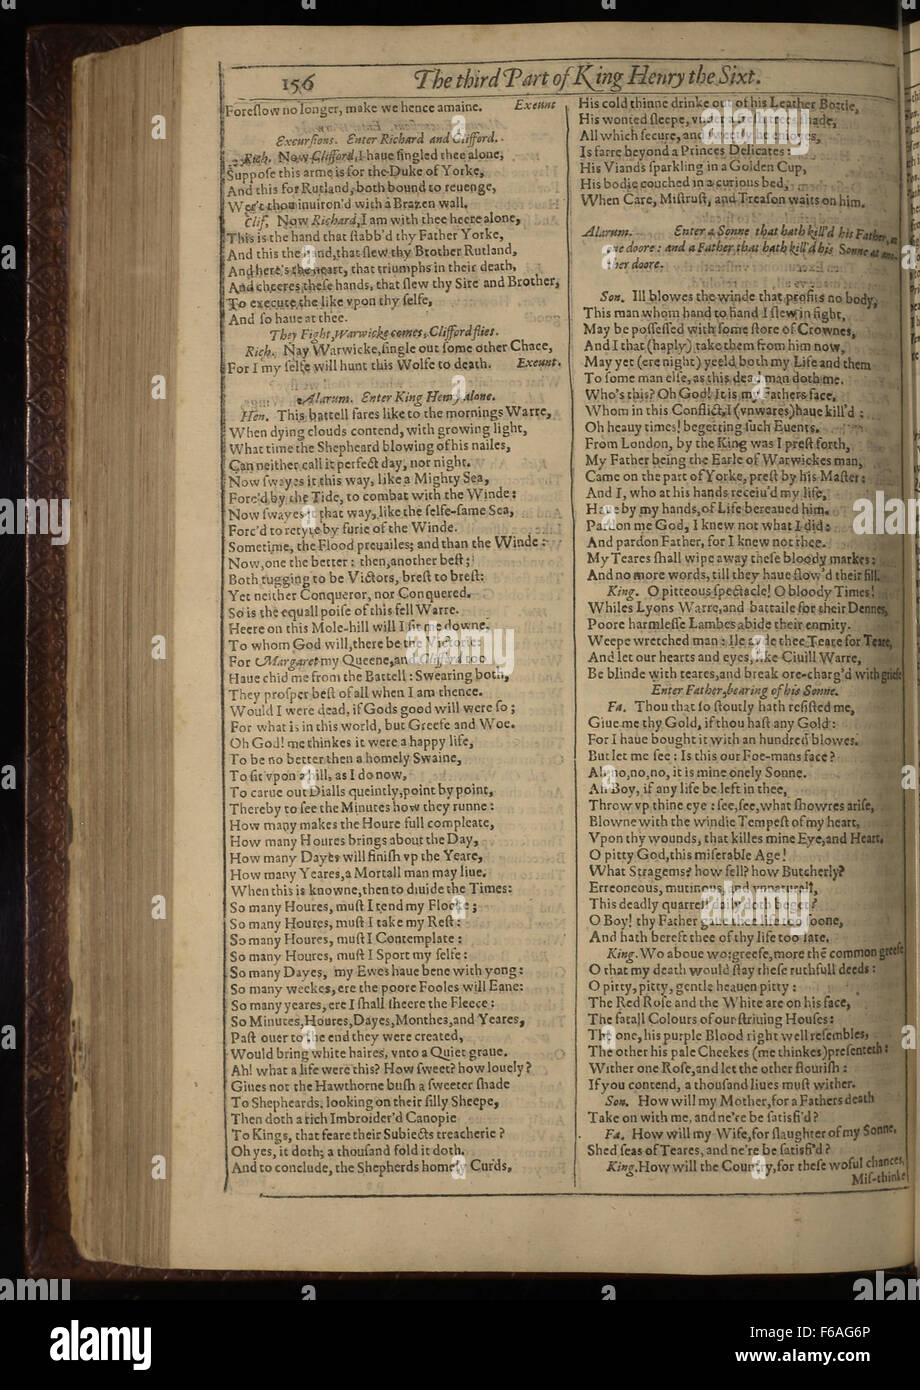 156
The third Part of King Henry the Sixt.
Foreſlow no longer, make we hence amaine. Exeunt
Excurſions. Enter Richard and Clifford.
Rich. Now Clifford, I haue ſingled thee alone,
Suppoſe this arme is for the Duke of Yorke,
And this for Rutland, both bound to reuenge,
Wer't thou inuiron'd with a Brazen wall.
Clif. Now Richard, I am with thee heere alone,
This is the hand that ſtabb'd thy Father Yorke,
And this the hand, that ſlew thy Brother Rutland,
And here's the heart, that triumphs in their death,
And cheeres theſe hands, that ſlew thy Sire and Brother,
To execute the like vpon thy ſelfe,
And ſo haue at thee.
They Fight, Warwicke comes, Clifford flies.
Rich. Nay Warwicke, ſingle out ſome other Chace,
For I my ſelfe will hunt this Wolfe to death. Exeunt.
Alarum. Enter King Henry alone.
Hen. This battell fares like to the mornings Warre,
When dying clouds contend, with growing light,
What time the Shepheard blowing of his nailes,
Can neither call it perfect day, nor night.
Now ſwayes it this way, like a Mighty Sea,
Forc'd by the Tide, to combat with the Winde:
Now ſwayes it that way, like the ſelfe-ſame Sea,
Forc'd to retyre by furie of the Winde.
Sometime, the Flood preuailes; and than the Winde:
Now, one the better: then, another beſt;
Both tugging to be Victors, breſt to breſt:
Yet neither Conqueror, nor Conquered.
So is the equall poiſe of this fell Warre.
Heere on this Mole-hill will I ſit me downe,
To whom God will, there be the Victorie:
For Margaret my Queene, and Clifford too
Haue chid me from the Battell: Swearing both,
They proſper beſt of all when I am thence.
Would I were dead, if Gods good will were ſo;
For what is in this world, but Greefe and Woe.
Oh God! me thinkes it were a happy life,
To be no better then a homely Swaine,
To ſit vpon a hill, as I do now,
To carue out Dialls queintly, point by point,
Thereby to ſee the Minutes how they runne:
How many makes the Houre full compleate,
How many Houres brings about the Day,
How many Dayes will finiſh vp the Yeare,
How many Yeares, a Mortall man may liue.
When this is knowne, then to diuide the Times:
So many Houres, muſt I tend my Flocke;
So many Houres, muſt I take my Reſt:
So many Houres, muſt I Contemplate:
So many Houres, muſt I Sport my ſelfe:
So many Dayes, my Ewes haue bene with yong:
So many weekes, ere the poore Fooles will Eane:
So many yeares, ere I ſhall ſheere the Fleece:
So Minutes, Houres, Dayes, Monthes, and Yeares,
Paſt ouer to the end they were created,
Would bring white haires, vnto a Quiet graue.
Ah! what a life were this? How ſweet? how louely?
Giues not the Hawthorne buſh a ſweeter ſhade
To Shepheards, looking on their ſilly Sheepe,
Then doth a rich Imbroider'd Canopie
To Kings, that feare their Subiects treacherie?
Oh yes, it doth; a thouſand fold it doth.
And to conclude, the Shepherds homely Curds,
His cold thinne drinke out of his Leather Bottle,
His wonted ſleepe, vnder a freſh trees ſhade,
All which ſecure, and ſweetly he enioyes,
Is farre beyond a Princes Delicates:
His Viands ſparkling in a Golden Cup,
His bodie couched in a curious bed,
When Care, Miſtruſt, and Treaſon waits on him.
Alarum. Enter a Sonne that hath kill'd his Father, at
one doore: and a Father that hath kill'd his Sonne at ano-
ther doore.
Son. Ill blowes the winde that profits no body,
This man whom hand to hand I ſlew in fight,
May be poſſeſſed with ſome ſtore of Crownes,
And I that (haply) take them from him now,
May yet (ere night) yeeld both my Life and them
To ſome man elſe, as this dead man doth me.
Who's this? Oh God! It is my Fathers face,
Whom in this Conflict, I (vnwares) haue kill'd:
Oh heauy times! begetting ſuch Euents.
From London, by the King was I preſt forth,
My Father being the Earle of Warwickes man,
Came on the part of Yorke, preſt by his Maſter:
And I, who at his hands receiu'd my life,
Haue by my hands, of Life bereaued him.
Pardon me God, I knew not what I did:
And pardon Father, for I knew not thee.
My Teares ſhall wipe away theſe bloody markes:
And no more words, till they haue flow'd their fill.
King. O pitteous ſpectacle! O bloody Times!
Whiles Lyons Warre, and battaile for their Dennes,
Poore harmleſſe Lambes abide their enmity.
Weepe wretched man: Ile ayde thee Teare for Teare,
And let our hearts and eyes, like Ciuill Warre,
Be blinde with teares, and break ore-charg'd with griefe
Enter Father, bearing of his Sonne.
Fa. Thou that ſo ſtoutly hath reſiſted me,
Giue me thy Gold, if thou haſt any Gold:
For I haue bought it with an hundred blowes.
But let me ſee: Is this our Foe-mans face?
Ah, no, no, no, it is mine onely Sonne.
Ah Boy, if any life be left in thee,
Throw vp thine eye: ſee, ſee, what ſhowres ariſe,
Blowne with the windie Tempeſt of my heart,
Vpon thy wounds, that killes mine Eye, and Heart.
O pitty God, this miſerable Age!
What Stragems? how fell? how Butcherly?
Erreoneous, mutinous, and vnnaturall,
This deadly quarrell daily doth beget?
O Boy! thy Father gaue thee life too ſoone,
And hath bereft thee of thy life too late.
King. Wo aboue wo: greefe, more thē common greefe
O that my death would ſtay theſe ruthfull deeds:
O pitty, pitty, gentle heauen pitty:
The Red Roſe and the White are on his face,
The fatall Colours of our ſtriuing Houſes:
The one, his purple Blood right well reſembles,
The other his pale Cheekes (me thinkes) preſenteth:
Wither one Roſe, and let the other flouriſh:
If you contend, a thouſand liues muſt wither.
Son. How will my Mother, for a Fathers death
Take on with me, and ne're be ſatisfi'd?
Fa. How will my Wife, for ſlaughter of my Sonne,
Shed ſeas of Teares, and ne're be ſatisfi'd?
King. How will the Country, for theſe woful chances,
Miſ-thinke
alamy
Image ID: F6AG6P
www.alamy.com